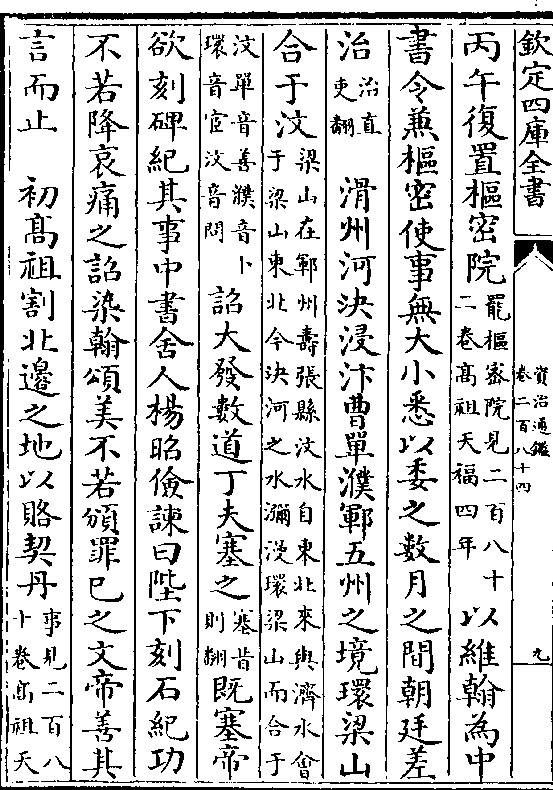 欽定四庫全書
資治通鑑
卷二百八十四
九
丙午復置樞密院罷樞密院見二百八十二卷髙祖天福四年以維翰為中
書令兼樞密使事無大小悉以委之數月之間朝廷差
治治直吏翻 滑州河決浸汴曹單濮鄆五州之境環梁山
合于汶梁山在鄆州壽張縣汶水自東北來與濟水會于梁山東北今決河之水瀰漫環梁山而合于
汶單音善濮音卜環音宦汶音問詔大發數道丁夫塞之塞昔則翻既塞帝
欲刻碑紀其事中書舍人楊昭儉諫曰陛下刻石紀功
不若降哀痛之詔染翰頌美不若頒罪已之文帝善其
言而止 初髙祖割北邊之地以賂契丹事見二百八十卷髙祖天